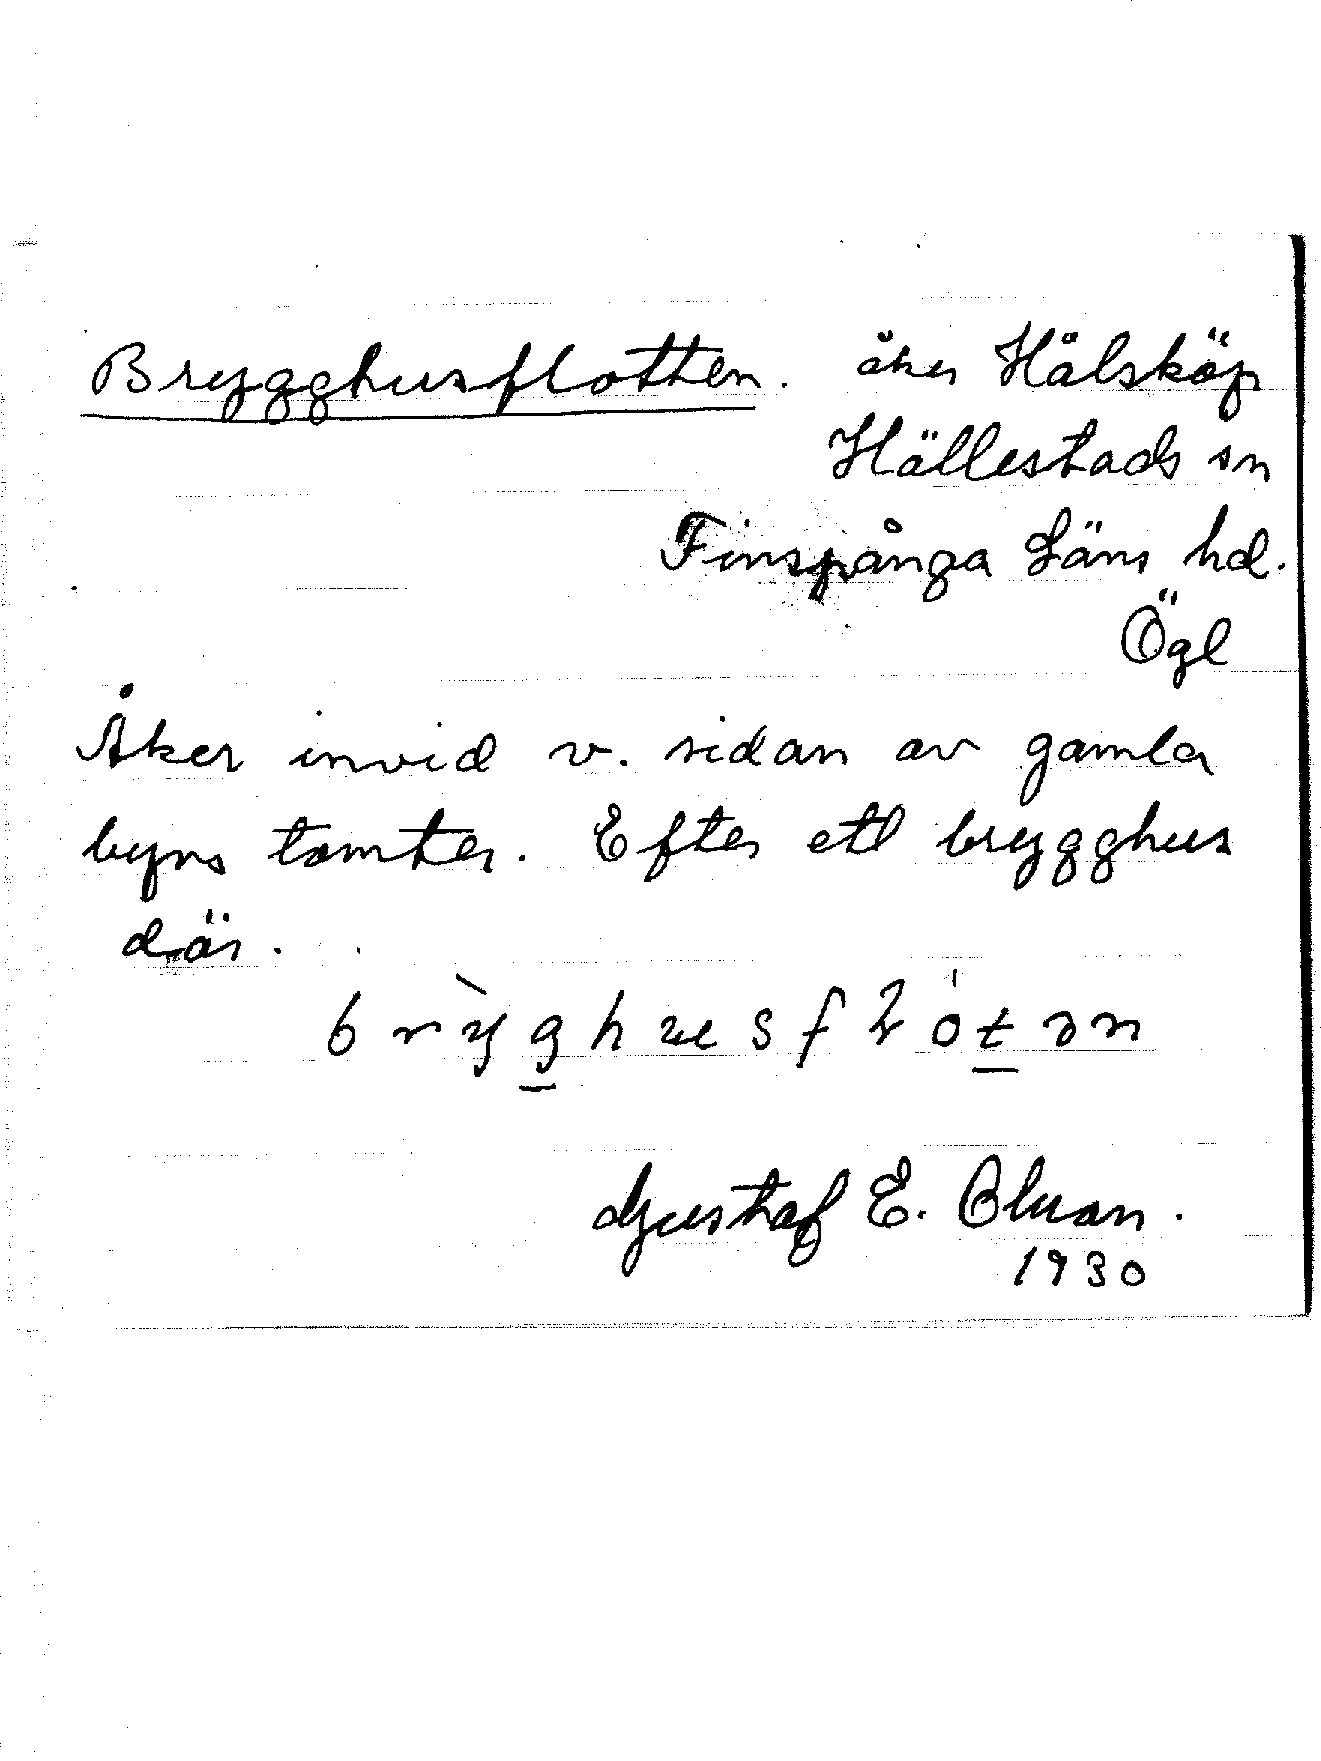 Brygghusflotten. åker Hålsköp
Hällestads sn
Finspånga Läns hd.
Ögl
Åker invid v. sidan av gamla
byns tomter. Efter ett brygghus
där.
Gustaf E. Olson.
1930